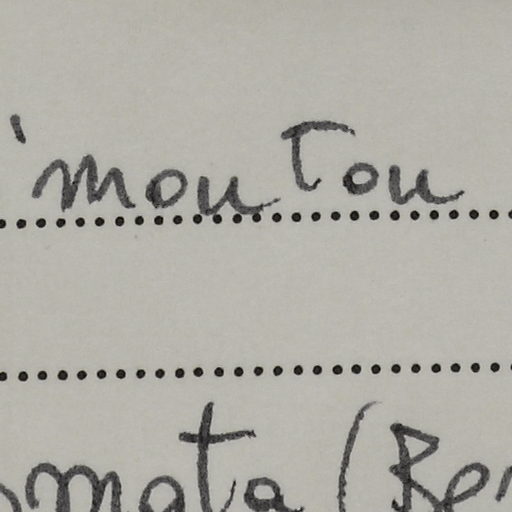 'mouTou
omata (Ber